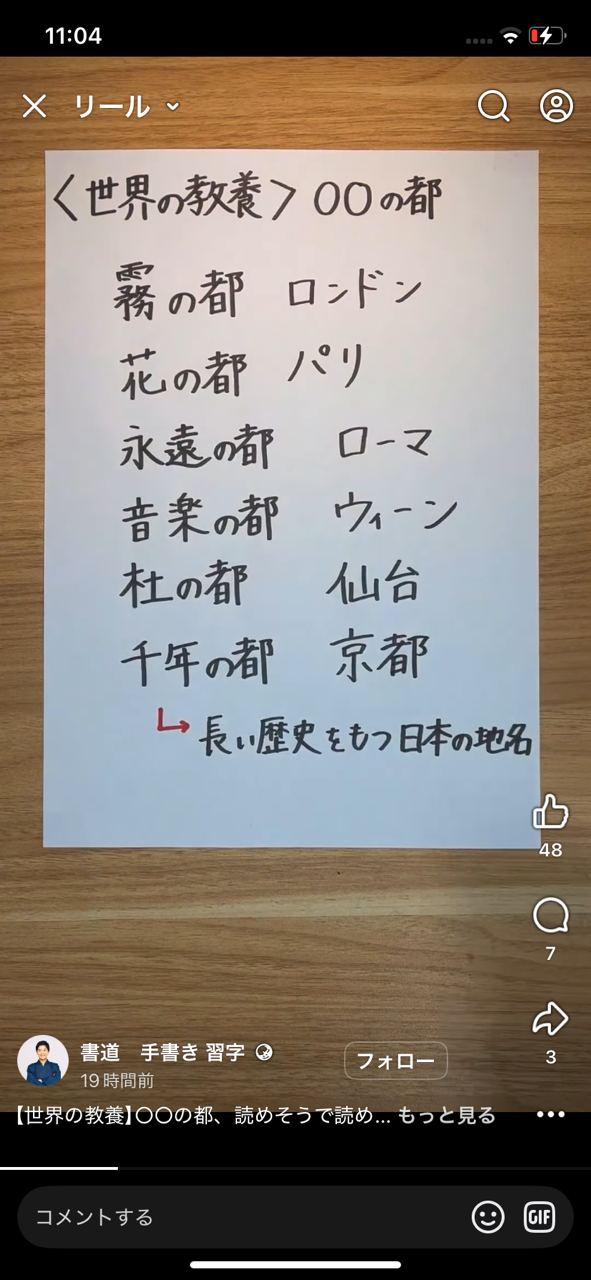 11:04
リール
〈世界の教養〉〇〇の都
霧の都 ロンドン
花の都 パリ
永遠の都 ローマ
音楽の都 ウィーン
杜の都 仙台
千年の都 京都
長い歴史をもつ日本の地名
48
7
3
書道 手書き 習字
フォロー
19時間前
【世界の教養】〇〇の都、読めそうで読め... もっと見る
コメントする
GIF